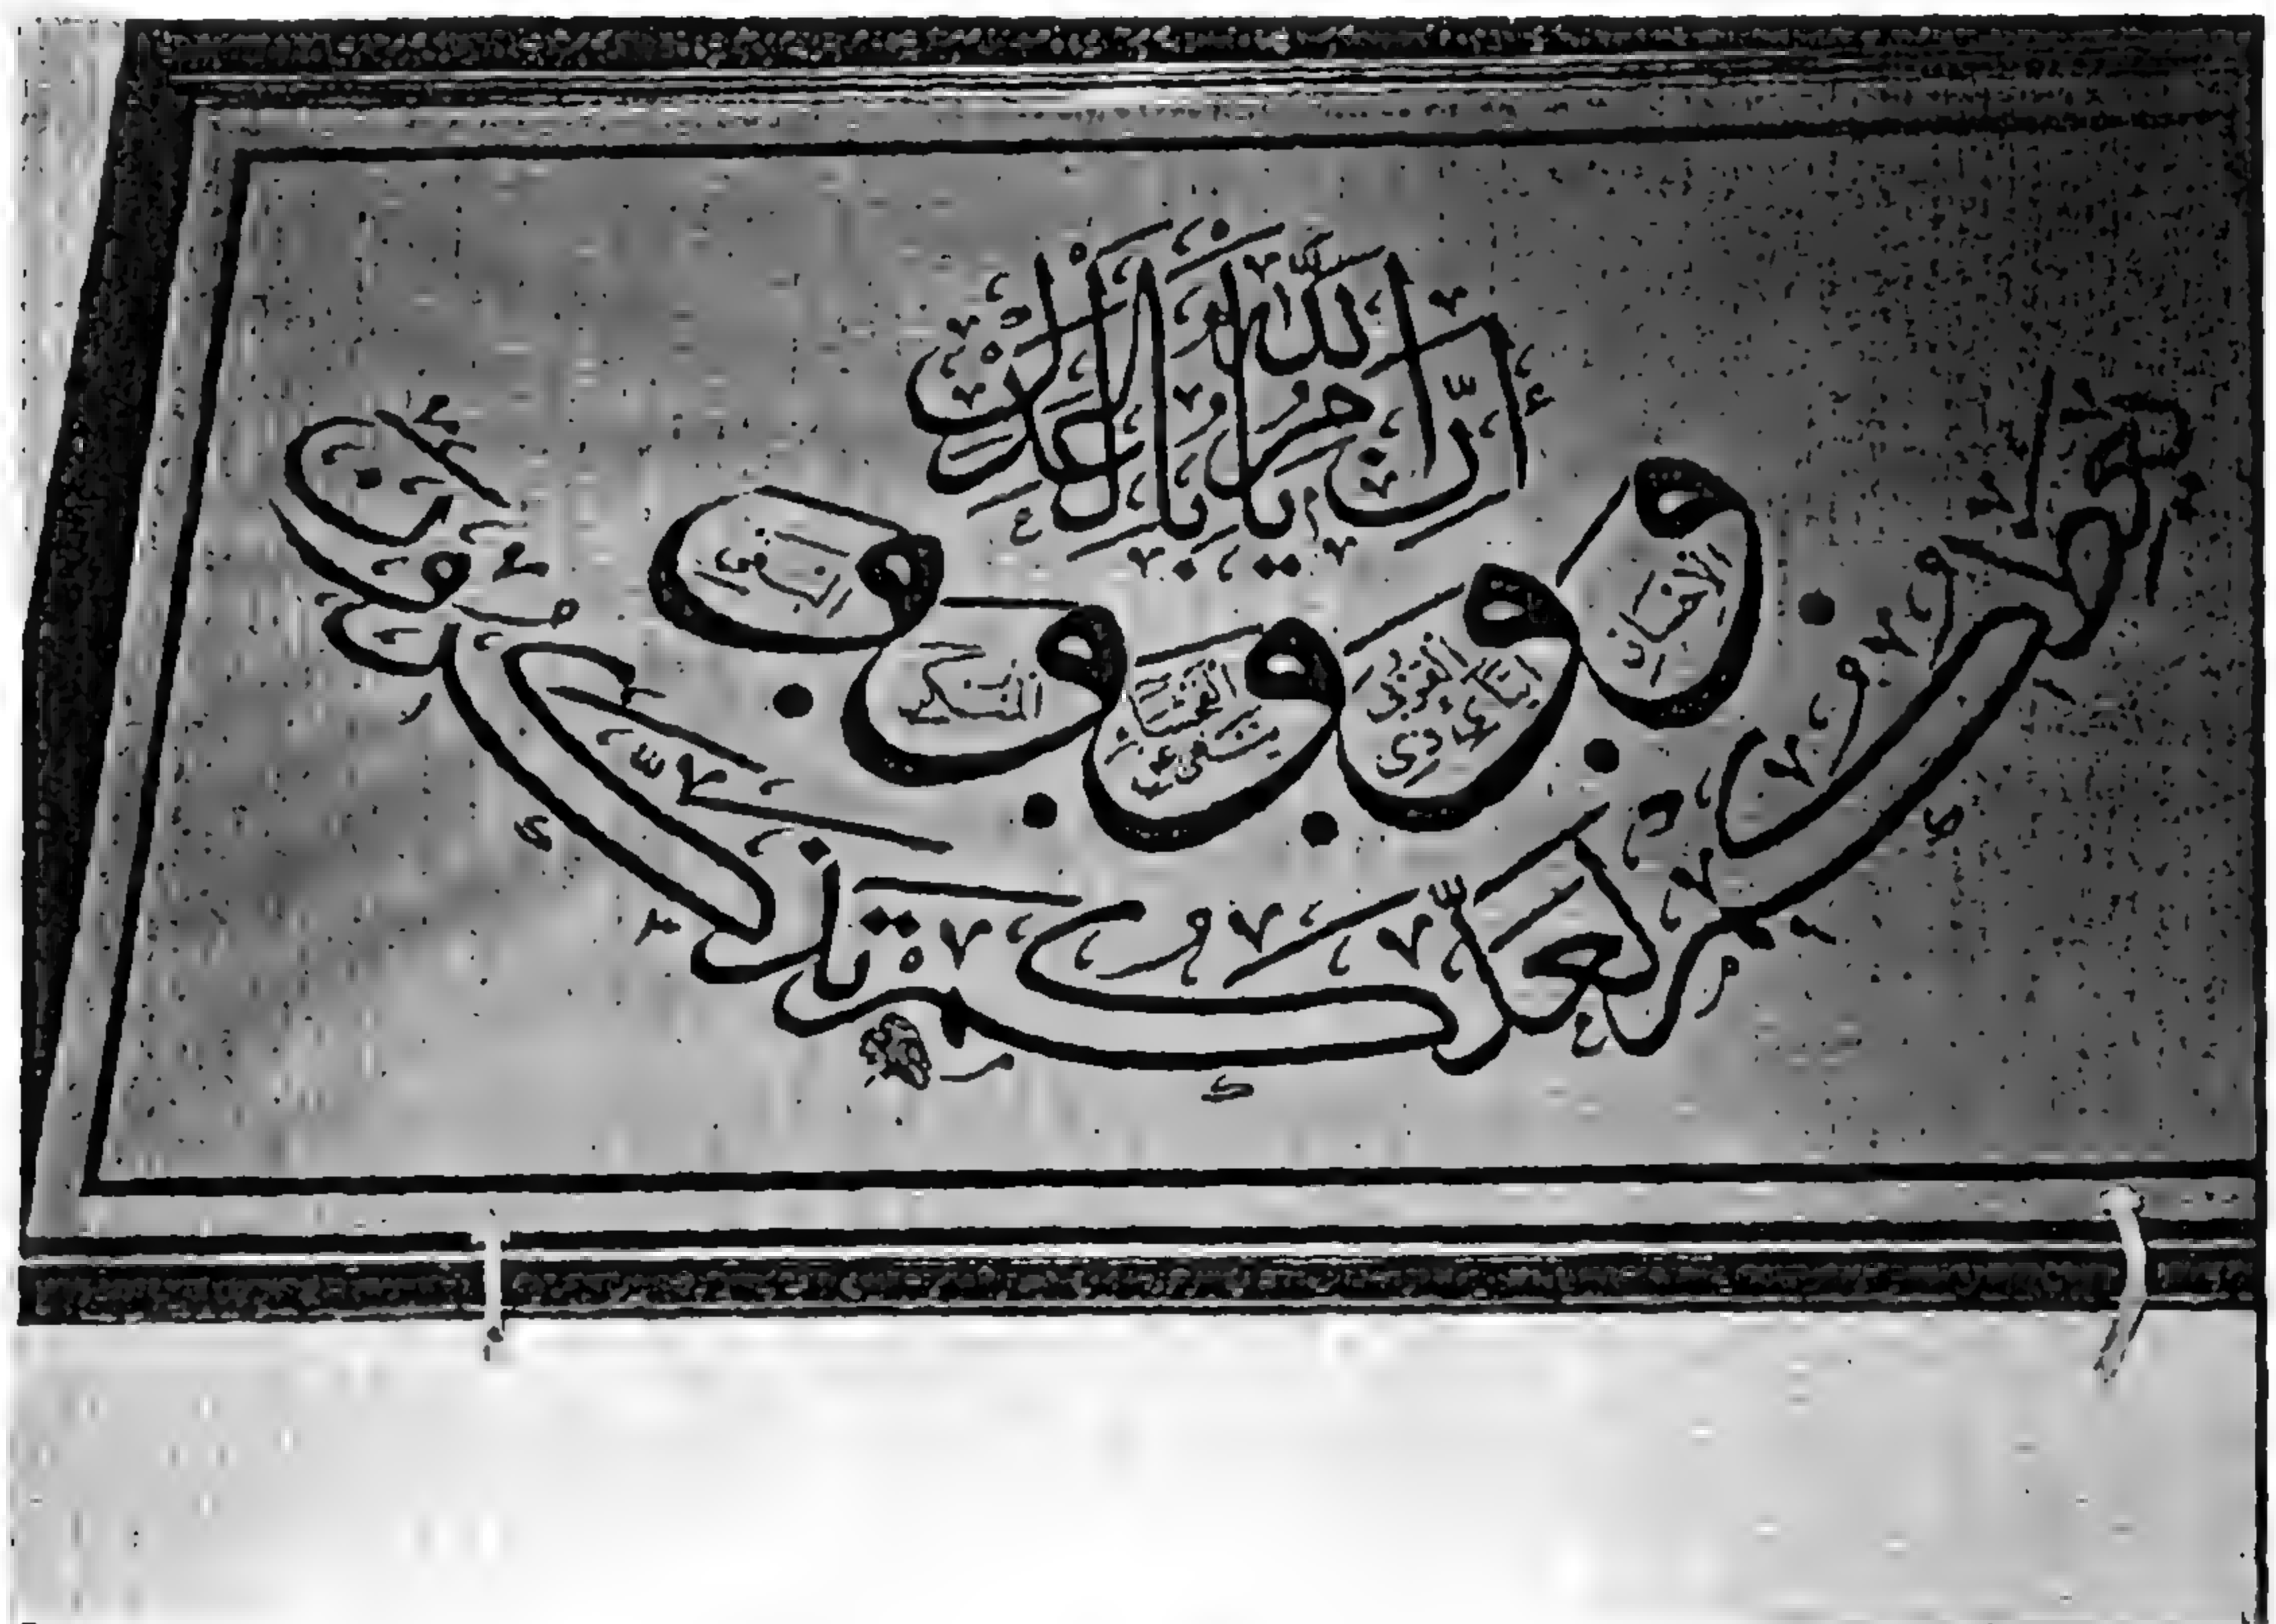 إن الله يأمر بالعدل
والإحسان
وإيتاء ذي القربى
وينهى عن الفحشاء
والمنكر
والبغي
يعظكم لعلكم تذكرون